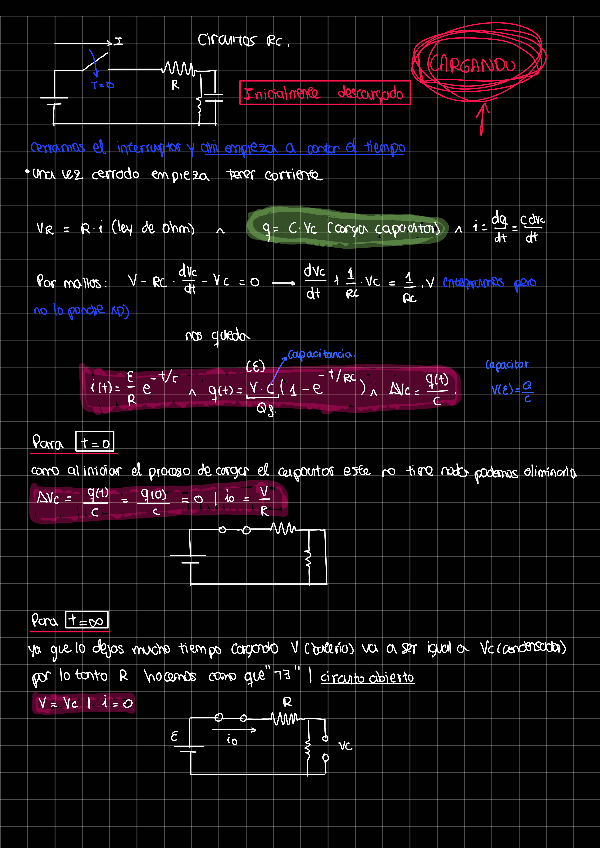 I
Circuitos RC.
CARGANDO
T=0
R
Inicialmente descargado
cerramos el interruptor y ahi empieza a contar el tiempo
• una vez cerrado empieza tener corriente
VR = R·i (ley de ohm) ∧ q = C·Vc (carga capacitor) ∧ i = dq/dt = C dVc/dt
Por mallas: V - RC · dVc/dt - Vc = 0 → dVc/dt + 1/RC · Vc = 1/RC · V integramos pero
no lo pondre xD)
nos queda
(ε) capacitancia
i(t) = ε/R e^-t/τ ∧ q(t) = V·C (1 - e^-t/RC) ∧ ΔVc = q(t)/C.
Qf
capacitor
V(ε) = Q/C
Para t=0
como al iniciar el proceso de cargar el capacitor este no tiene nada podemos eliminarlo
ΔVc = q(t)/C = q(0)/C = 0 | io = V/R
Para t=∞
ya que lo dejas mucho tiempo cargando V(batería) va a ser igual a Vc(condensador)
por lo tanto R hacemos como que | circuito abierto
V = Vc | i = 0
R
ε
io
Vc